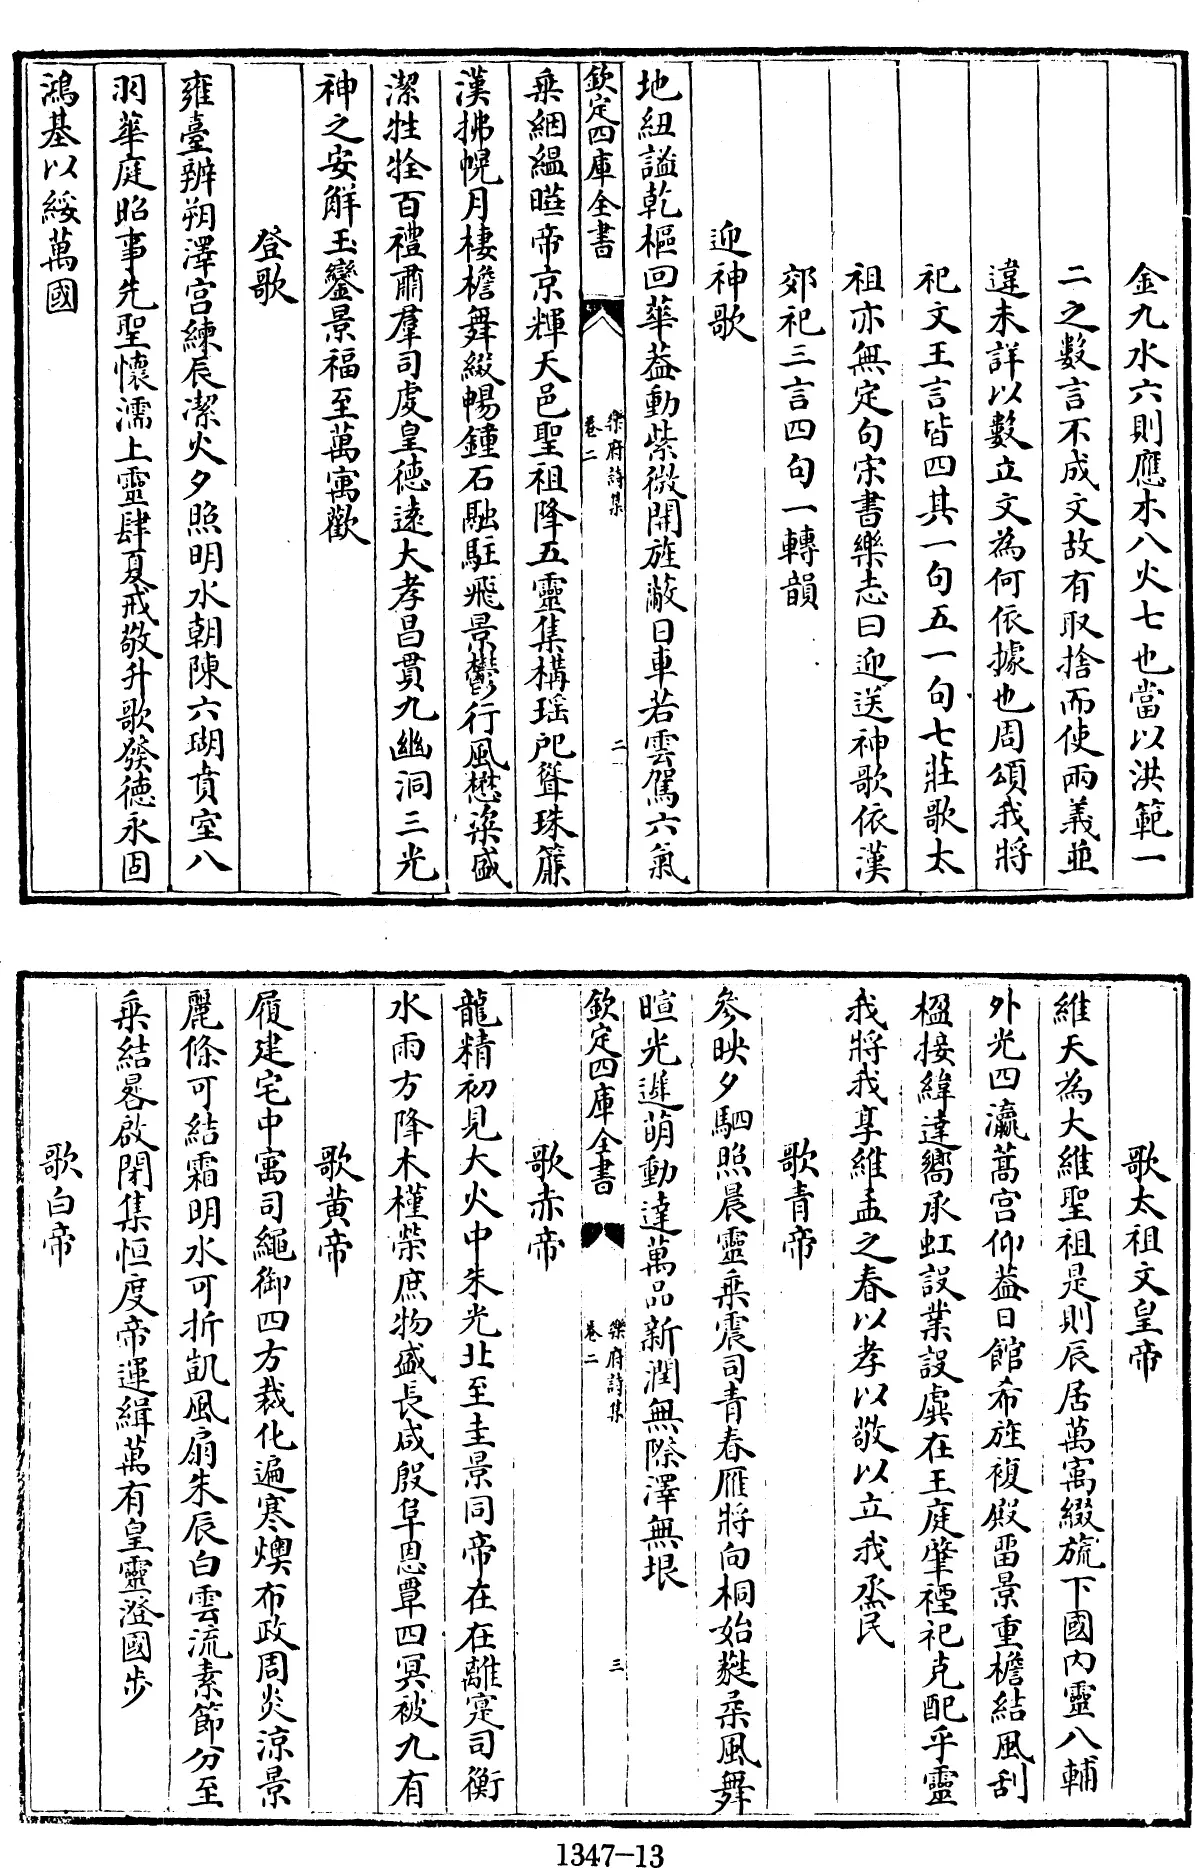 金九水六則應木八火七也當以洪範一
二之數言不成文故有取捨而使兩義並
違未詳以數立文為何依據也周頌我將
祀文王言皆四其一句五一句七莊歌太
祖亦無定句宋書樂志曰迎送神歌依漢
郊祀三言四句一轉韻
迎神歌
地紐謐乾樞回華蓋動紫微開旌蔽日車若雲駕六氣
欽定四庫全書
樂府詩集
卷二
二
乘絪縕曖帝京輝天邑聖祖降五靈集構瑶戺聳珠簾
漢拂幌月棲檐舞綴暢鍾石融駐飛景鬱行風懋粢盛
潔牲牷百禮肅羣司虔皇德遠大孝昌貫九幽洞三光
神之安解玉鑾景福至萬㝢歡
登歌
雍臺辨朔澤宫練辰潔火夕照明水朝陳六瑚賁室八
羽華庭昭事先聖懷濡上靈肆夏戒敬升歌發德永固
鴻基以綏萬國
歌太祖文皇帝
維天為大維聖祖是則辰居萬㝢綴旒下國内靈八輔
外光四瀛蒿宫仰蓋日館希旌複殿留景重檐結風刮
楹接緯達嚮承虹設業設虡在王庭肇禋祀克配乎靈
我將我享維孟之春以孝以敬以立我烝民
歌青帝
參映夕駟照晨靈乘震司青春雁將向桐始蕤柔風舞
暄光遲萌動達萬品新潤無際澤無垠
欽定四庫全書
樂府詩集
卷二
三
歌赤帝
龍精初見大火中朱光北至圭景同帝在在離寔司衡
水雨方降木槿榮庶物盛長咸殷阜恩覃四冥被九有
歌黄帝
履建宅中㝢司繩御四方裁化遍寒燠布政周炎涼景
麗條可結霜明水可折凱風扇朱辰白雲流素節分至
乘結晷啟閉集恒度帝運緝萬有皇靈澄國步
歌白帝
1347-13